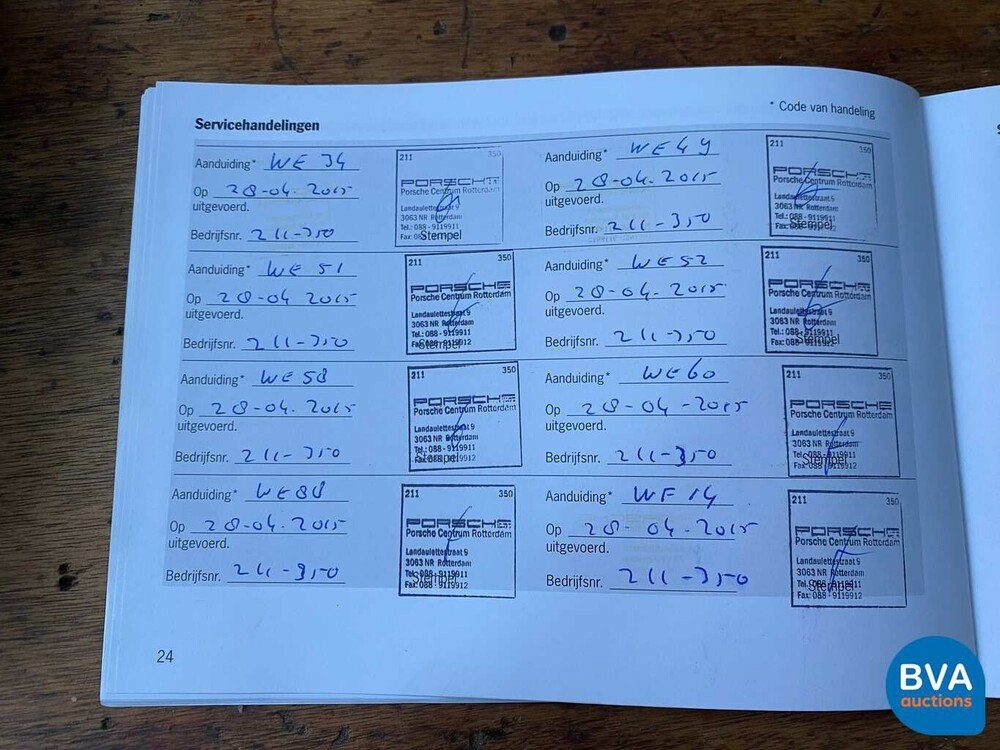 * Code van handeling
Servicehandelingen
Aanduiding* WE 34
Op 28-04-2015
uitgevoerd.
Bedrijfsnr. 211-350
211 350
PORSCHE
Porsche Centrum Rotterdam
Landaulettestraat 9
3063 NR Rotterdam
Tel.: 088 - 9119911
Fax: 08
Stempel
Aanduiding* WE 49
Op 28-04-2015
uitgevoerd.
Bedrijfsnr. 211-350
211 350
PORSCHE
Porsche Centrum Rotterdam
Landaulettestraat 9
3063 NR Rotterdam
Tel.: 088 - 9119911
Fax: 088 - 9119912
Stempel
Aanduiding* WE 51
Op 28-04 2015
uitgevoerd.
Bedrijfsnr. 211-350
211 350
PORSCHE
Porsche Centrum Rotterdam
Landaulettestraat 9
3063 NR Rotterdam
Tel.: 088 - 9119911
Fax: 088 - 9119912
Stempel
Aanduiding* WE52
Op 28-04-2015
uitgevoerd.
Bedrijfsnr. 211-350
211 350
PORSCHE
Porsche Centrum Rotterdam
Landaulettestraat 9
3063 NR Rotterdam
Tel.: 088 - 9119911
Fax: 088 - 9119912
Stempel
Aanduiding* WE 58
Op 28-04-2015
uitgevoerd.
Bedrijfsnr. 211-350
211 350
PORSCHE
Porsche Centrum Rotterdam
Landaulettestraat 9
3063 NR Rotterdam
Tel.: 088 - 9119911
Fax: 088 - 9119912
Stempel
Aanduiding* WE60
Op 28-04-2015
uitgevoerd.
Bedrijfsnr. 211-350
211 350
PORSCHE
Porsche Centrum Rotterdam
Landaulettestraat 9
3063 NR Rotterdam
Tel.: 088 - 9119911
Fax: 088 - 9119912
Stempel
Aanduiding* WE88
Op 28-04-2015
uitgevoerd.
Bedrijfsnr. 211-350
211 350
PORSCHE
Porsche Centrum Rotterdam
Landaulettestraat 9
3063 NR Rotterdam
Tel.: 088 - 9119911
Fax: 088 - 9119912
Stempel
Aanduiding* WF14
Op 28-04-2015
uitgevoerd.
Bedrijfsnr. 211-350
211 350
PORSCHE
Porsche Centrum Rotterdam
Landaulettestraat 9
3063 NR Rotterdam
Tel.: 088 - 9119911
Fax: 088 - 9119912
Stempel
24
BVA
auctions